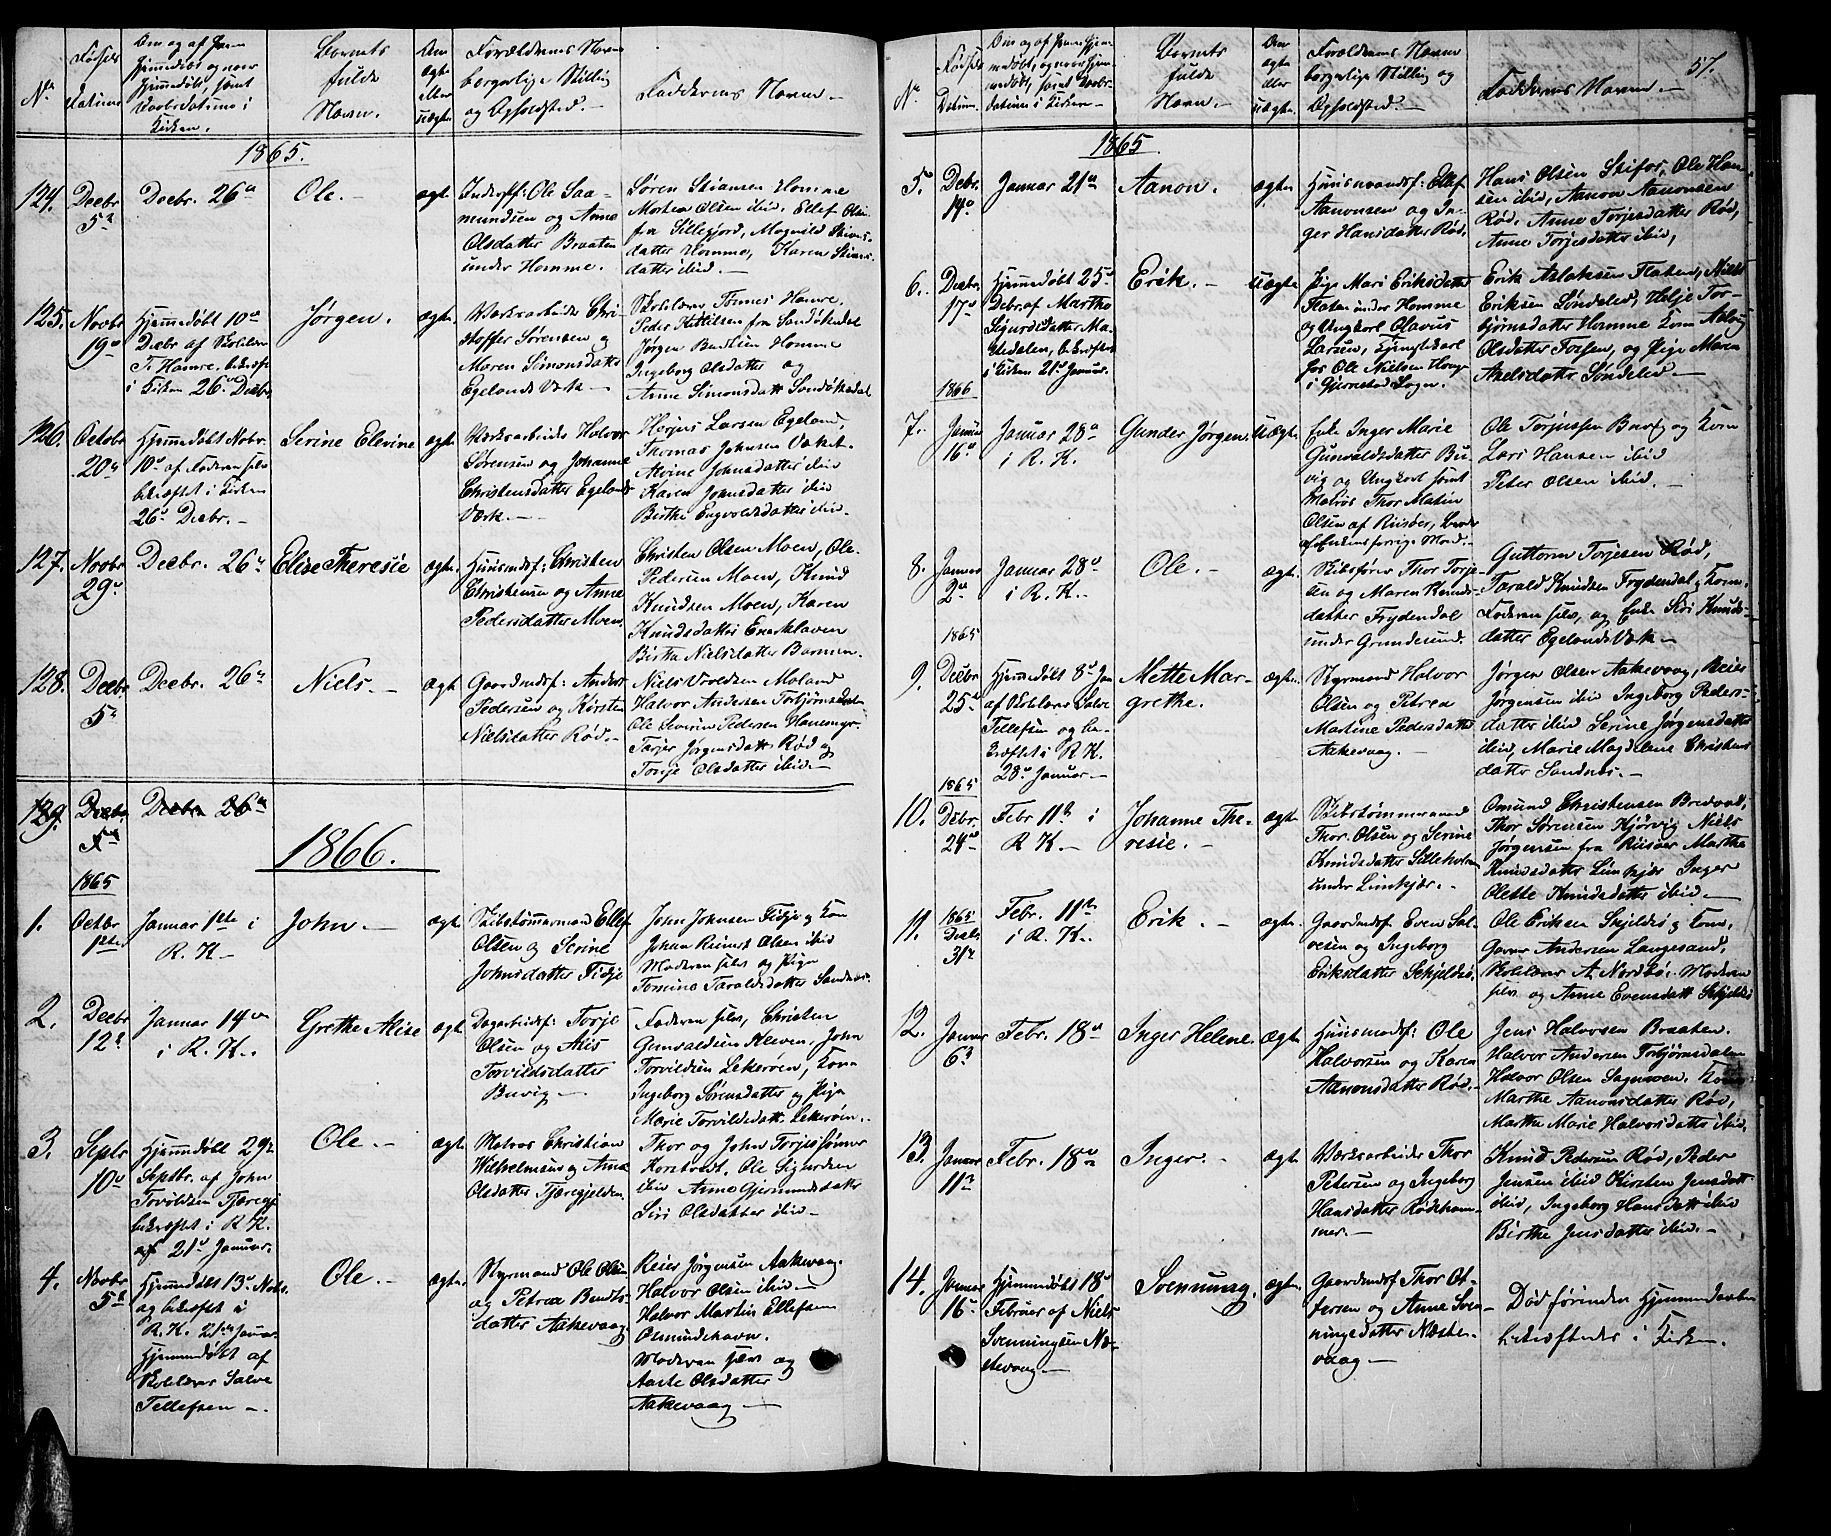 No.
Fødsels
datum
Om og af hvem
hjemmedøbt og naar
hjemmedøbt, samt
Daabsdatum i
Kirken.
Barnets
fulde
Navn.
Om
ægte
eller
uægte
Forældrenes Navne
borgerlige Stilling
og Opholdsted.
Faddernes Navne.
1865.
124.
Decbr
5te
Decbr. 26de
Ole.
ægt.
Inderstf: Ole Saa-
mundsen og Anne
Olsdatter Braaten
under Homme.
Søren Stiansen Homme
Morten Olsen ibid, Ellef Olsen
fra Sillegjord, Magnild Stians-
datter Homme, Karen Stians-
datter ibid.
125.
Novbr
19de
Hjemmedøbt 10de
Decbr af Skolelærer
T. Hamre, bekræft.
i Kirken 26de Decbr.
Jørgen.
ægte.
Værksarbeider Chri-
stoffer Sørensen og
Maren Simonsdatter
Egelands Værk
Skolelærer Tønnes Hamre,
Peder Kittilsen fra Søndøledal
Jørgen Bentsen Homme
Ingeborg Olsdatter og
Anne Simonsdatt Søndøledal
126.
Octobr
20de
Hjemmedøbt Novbr.
10de af Faderen selv
bekræftet i Kirken
26de Decbr.
Serine Elevine
ægt.
Værksarbeider Halvor
Sørensen og Johanne
Christensdatter Egelands
Værk.
Larsen Egeland,
Thomas Johnsen Vaket
Alvine Johnsdatter ibid
Karen Johnsdatter ibid
Birthe Engvoldsdatter ibid.
127.
Novbr
29de
Decbr. 26de
Elise Theresie
ægte.
Huusmdsf: Christen
Christensen og Anne
Pedersdatter Moen.
Christen Olsen Moen, Ole
Pedersen Moen, Knud
Knudsen Moen, Karen
Knudsdatter Eneklaven
Birthe Nielsdatter Barmen.
128.
Decbr
5te
Decbr. 26de
Niels.
ægt.
Gaardmdsf: Anders
Pedersen og Kirsten
Nielsdatter Rød.
Niels Moland
Halvor Andersen Torbjørnsdalen
Ole Severin Pedersen Hanemyr
Jørgensdatt Rød og
Torje Olsdatter ibid.
129.
Decbr.
5te
Decbr. 26de
1866.
1865
1.
Octbr
1ste
Januar 1ste i
R. K.
John.
ægt.
Skibstømmermand Ellef
Olsen og Serine
Johnsdatter Fidje
John Johnsen Fidje og Kone
Johan Olsen ibid
Moderen selv og Pige
Tomine Taraldsdatter Sandnes
2.
Decbr
12te
Januar 14de
i R. K.
Grethe Alise
ægt.
Dagarbeidsf: Torje
Olsen og Alis
Torvildsdatter
Buvig
Faderen selv, Christen
Gunvaldsen Kleven, John
Torvildsen Lekerøen, Kone
Ingeborg Sørensdatter og Pige
Marie Torvildsdatt. Lekerøen.
3.
Septbr
10de
Hjemmedøbt 29de
Septbr. af John
Torvildsen Tjæregj.
bekræftet i R. K.
af 21de Januar.
Ole.
ægt.
Matros Christian
Wilhelmsen og Anne
Olsdatter Tjæregjelden.
Thor og John Torjessønner
Korstvedt, Ole Sigurdsen
ibid Anne Gjermundsdatter
Siri Olsdatter ibid
4.
Novbr
5te
Hjemmedøbt 13de Novb.
og bekræftet i
R. K. 21de Januar.
Hjemmedøbt af
Skolelærer Salve
Tellefsen.
Ole.
ægte.
Styrmand Ole Olsen
og Petrea Bendts-
datter Aakevaag
Reier Jørgensen Aakevaag
Halvor Olsen ibid.
Halvor Martin Ellefsen
Osmundshavn.
Moderen selv og
Aaste Olsdatter
Aakevaag
57.
No.
Fødsels
Datum.
Om og af hvem hjem-
medøbt, og naar hjem-
medøbt, samt Daabs-
datum i Kirken
Barnets
fulde
Navn.
Om
ægte
eller
uægte
Forældrenes Navne
borgerlige Stilling og
Opholdsted.
Faddernes Navne.
1865
5.
Decbr.
19de
Januar 21de
Aanon.
ægte.
Huusmandsf: Ellef
Aanonsen og In-
ger Hansdatter Rød.
Hans Olsen Stifos, Ole Han-
sen ibid, Aanon Aanonsen
Rød, Anne Torjesdatter Rød,
Anne Torjesdatter ibid,
6.
Decbr.
17de
Hjemmedøbt 25de
Debr. af Martha
Sigurdsdatter Ma-
stedalen, bekræftet
i Kirken 21de Januar.
Erik.
uægte
Pige Mari Eriksdatter
Flaten under Homme
og Ungkarl Olavus
Larsen, Tjenestkarl
hos Ole Nielsen Houge
i Gjerrestad Sogn.
Erik Aslaksen Flaten, Niels
Eriksen Søndeled, Helje Tor-
bjørnsdatter Homme, Kone Aslaug
Olsdatter Fossen, og Pige Maren
Axelsdatter Søndeled
1866
7.
Januar
16de
Januar 28de
i R. K.
Gunder Jørgen.
uægte
Enke Inger Marie
Gunvaldsdatter Bu-
vig og Ungkarl samt
Matros Thor Matin
Olsen af Riisøer,
af Enkens forrige Mand.
Ole Torjussen Buvig og Kone
Lars Hansen ibid
Peter Olsen ibid.
8.
Januar
2de
Januar 28de
i R. K.
Ole.
ægt.
Skibsfører Thor Torje-
sen og Maren Knuds-
datter Frydendal
under Grundesund.
Guttorm Torjesen Rød,
Tarald Knudsen Frydendal og Kone.
Faderen selv, og Enke Siri Knuds-
datter Egelands Værk
1865
9.
Decbr
25de
Hjemmedøbt 8de Jan
af Skolelærer Salve
Tellefsen og be-
kræftet i R. K.
28de Januar.
Mette Mar-
grethe.
ægte.
Styrmand Halvor
Olsen og Petrea
Martine Pedersdatter
Aakevaag.
Jørgen Olsen Aakevaag, Reier
Jørgensen ibid Ingeborg Peders-
datter ibid Serine Jørgensdatter
ibid, Marie Magdalene Christens-
datter Sandnes.
1865
10.
Debr.
24de
Febr 11te i
R K.
Johanne The-
resie.
ægt.
Skibstømmermand
Thor. Olsen og Serine
Knudsdatter Silleholmen
under Limkjær.
Omund Christensen Bredvad,
Thor Sørensen Kjørvig Niels
Jørgensen fra Riisøer Martha
Knudsdatter Limkjær Inger
Olette Knudsdatter ibid.
11.
1865
Decbr
31te
Febr. 11te
i R. K.
Erik.
ægte.
Gaardmdsf: Even Sal-
vesen og Ingeborg
Eriksdatter Skjeldsø.
Ole Eriksen Skjeldsø og Kone,
Andersen Langesand,
Skolelærer A. Nordbø. Moderen
selv og Anne Evensdatt. Skjeldsø
12.
Januar
6te
Febr. 18de
Inger Helene.
ægte
Huusmdsf: Ole
Halvorsen og Karen
Aanonsdatter Rød.
Jens Halvorsen Braaten.
Halvor Andersen Torbjørnsdalen
Halvor Olsen Sagmoen. Kone
Marthe Aanonsdatter Rød,
Martha Marie Halvorsdatter ibid.
13.
Januar
11te
Febr. 18de
Inger.
ægt.
Værksarbeider Thor
Petersen og Ingeborg
Hansdatter Rødeham-
mer.
Knud Pedersen Rød, Peder
Jensen ibid Kirsten Jensdatt
ibid, Ingeborg Hansdatt ibid
Birthe Jensdatter ibid.
14.
Januar
16
Hjemmedøbt 18de
Februar af Niels
Svenningsen Næ-
stevaag
Svennung.
ægt.
Gaardmdsf Thor Ot-
tersen og Anne Sven-
ningsdatter Næste-
vaag
Død førinden Hjemmedaaben
bekræftedes i Kirken.